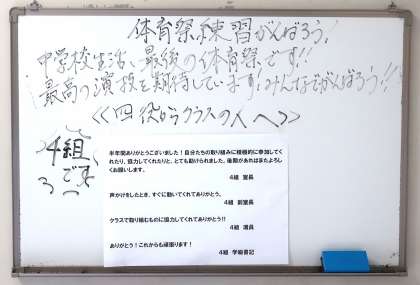 体育祭練習がんばろう!
中学校生活、最後の体育祭です!!
最高の演技を期待しています!みんなでがんばろう!!
<<四役からクラスの人へ>>
4組
です
半年間ありがとうございました!自分たちの取り組みに積極的に参加してく
れたり、協力してくれたりと、とても助けられました。後期があればまたよろし
くお願いします。
4組 室長
声かけをしたとき、すぐに動いてくれてありがとう。
4組 副室長
クラスで取り組むものに協力してくれてありがとう!!
4組 議員
ありがとう!これからも頑張ります!
4組 学級書記